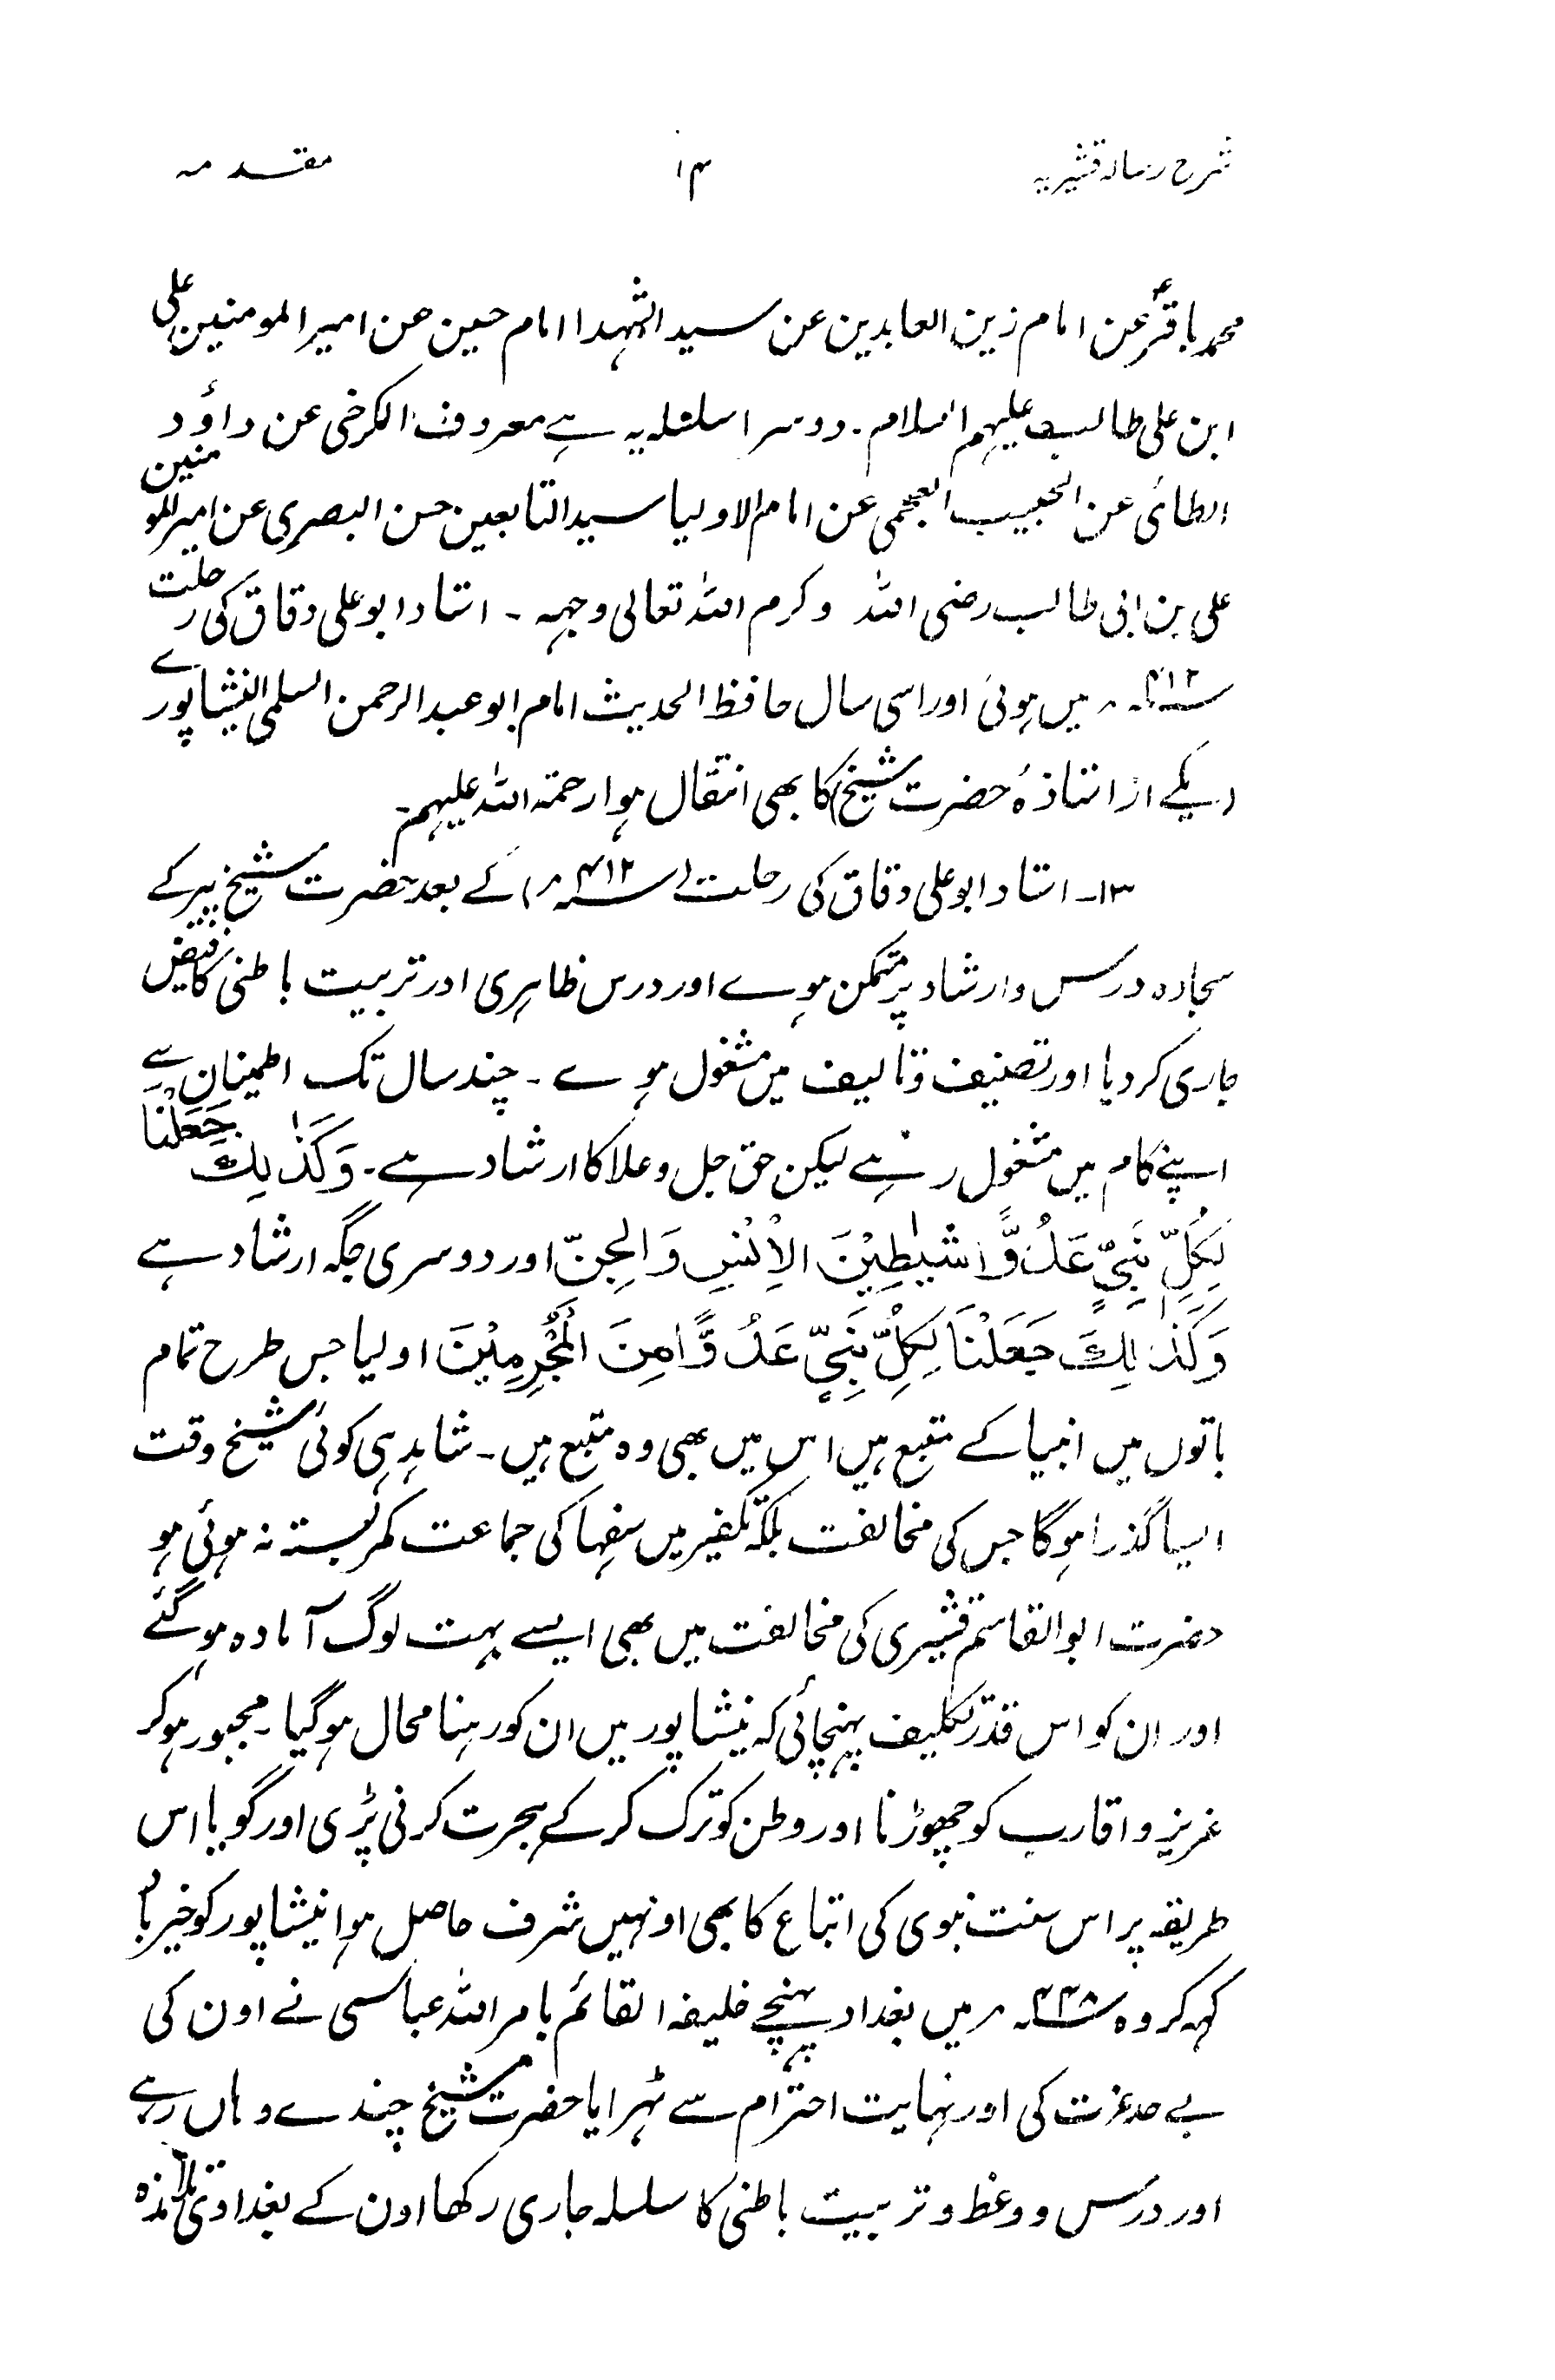 شرح رسالہ قشیریہ ۱۴ مقدمہ
محمد باقرؑ عن امام زین العابدین عن سید الشہدا امام حسین عن امیر المومنین علی
ابن علی طالب علیہم السلام۔ دوسرا سلسلہ یہ ہے معروف الکرخی عن داؤد
الطائی عن الحبیب العجمی عن امام الاولیا سید التابعین حسن البصری عن امیر المومنین
علی بن ابی طالب رضی اللہ وکرم اللہ تعالی وجہہ ۔ استاد ابو علی دقاق کی رحلت
۴۱۲ھ میں ہوئی اور اسی سال حافظ الحدیث امام ابو عبدالرحمن السلمی النیشاپورے
(یکے از اساتذۂ حضرت شیخ) کا بھی انتقال ہوا رحمۃ اللہ علیہم۔
۱۳۔ استاد ابو علی دقاق کی رحلت (۴۱۲ھ) کے بعد حضرت شیخ پیر کے
سجادہ درس وارشاد پر متمکن ہوے اور درس ظاہری اور تربیت باطنی کا فیض
جاری کر دیا اور تصنیف و تالیف میں مشغول ہوے ۔ چند سال تک اطمینان سے
اپنے کام میں مشغول رہے لیکن حق جل وعلا کا ارشاد ہے۔ وَكَذٰلِكَ جَعَلْنَا
لِكُلِّ نَبِيٍّ عَدُوًّا شَيٰطِيْنَ الْاِنْسِ وَالْجِنِّ اور دوسری جگہ ارشاد ہے
وَكَذٰلِكَ جَعَلْنَا لِكُلِّ نَبِيٍّ عَدُوًّا مِنَ الْمُجْرِمِيْنَ اولیا جس طرح تمام
باتوں میں انبیا کے متبع ہیں اس میں بھی وہ متبع ہیں۔ شاید ہی کوئی شیخ وقت
ایسا گذرا ہوگا جس کی مخالفت بلکہ تکفیر میں سفہا کی جماعت کمر بستہ نہ ہوئی ہو
حضرت ابوالقاسم قشیری کی مخالفت میں بھی ایسے بہت لوگ آمادہ ہوگئے
اور ان کو اس قدر تکلیف پہنچائی کہ نیشاپور میں ان کو رہنا محال ہوگیا۔ مجبور ہو کر
عزیز و اقارب کو چھوڑنا اور وطن کو ترک کر کے ہجرت کرنی پڑی اور گویا اس
طریقہ پر اس سنت نبوی کی اتباع کا بھی اونہیں شرف حاصل ہوا نیشاپور کو خیرباد
کہہ کر وہ ۴۴۸ھ میں بغداد پہنچے خلیفہ القائم بامر اللہ عباسی نے اون کی
بے حد عزت کی اور نہایت احترام سے ٹہرایا حضرت شیخ چندے وہاں رہے
اور درس و وعظ و تربیت باطنی کا سلسلہ جاری رکھا اون کے بغدادی تلامذہ